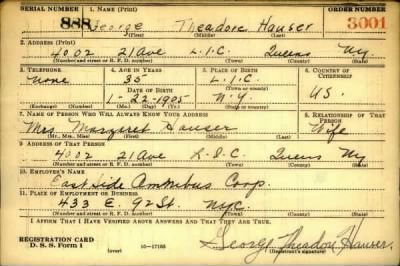 SERIAL NUMBER 1. NAME (Print) ORDER NUMBER
888 George Theodore Hauser 3001
(First) (Middle) (Last)
2. ADDRESS (Print)
4002 21 Ave L.I.C. Queens Ny
(Number and street or R. F. D. number) (Town) (County) (State)
3. TELEPHONE 4. AGE IN YEARS 5. PLACE OF BIRTH 6. COUNTRY OF CITIZENSHIP
None 35 L.I.C.
DATE OF BIRTH (Town or county)
1-22-1905 N.Y. U.S.
(Exchange) (Number) (Mo.) (Day) (Yr.) (State or country)
7. NAME OF PERSON WHO WILL ALWAYS KNOW YOUR ADDRESS 8. RELATIONSHIP OF THAT PERSON
Mrs. Margaret Hauser Wife
(Mr., Mrs., Miss) (First) (Middle) (Last)
9. ADDRESS OF THAT PERSON
4002 21 Ave L.I.C. Queens Ny
(Number and street or R. F. D. number) (Town) (County) (State)
10. EMPLOYER'S NAME
East Side Omnibus Corp.
11. PLACE OF EMPLOYMENT OR BUSINESS
433 E. 92 St. NYC.
(Number and street or R. F. D. number) (Town) (County) (State)
I AFFIRM THAT I HAVE VERIFIED ABOVE ANSWERS AND THAT THEY ARE TRUE.
REGISTRATION CARD
D. S. S. Form 1 (over) 16-17105 George Theodore Hauser
(Registrant's signature)